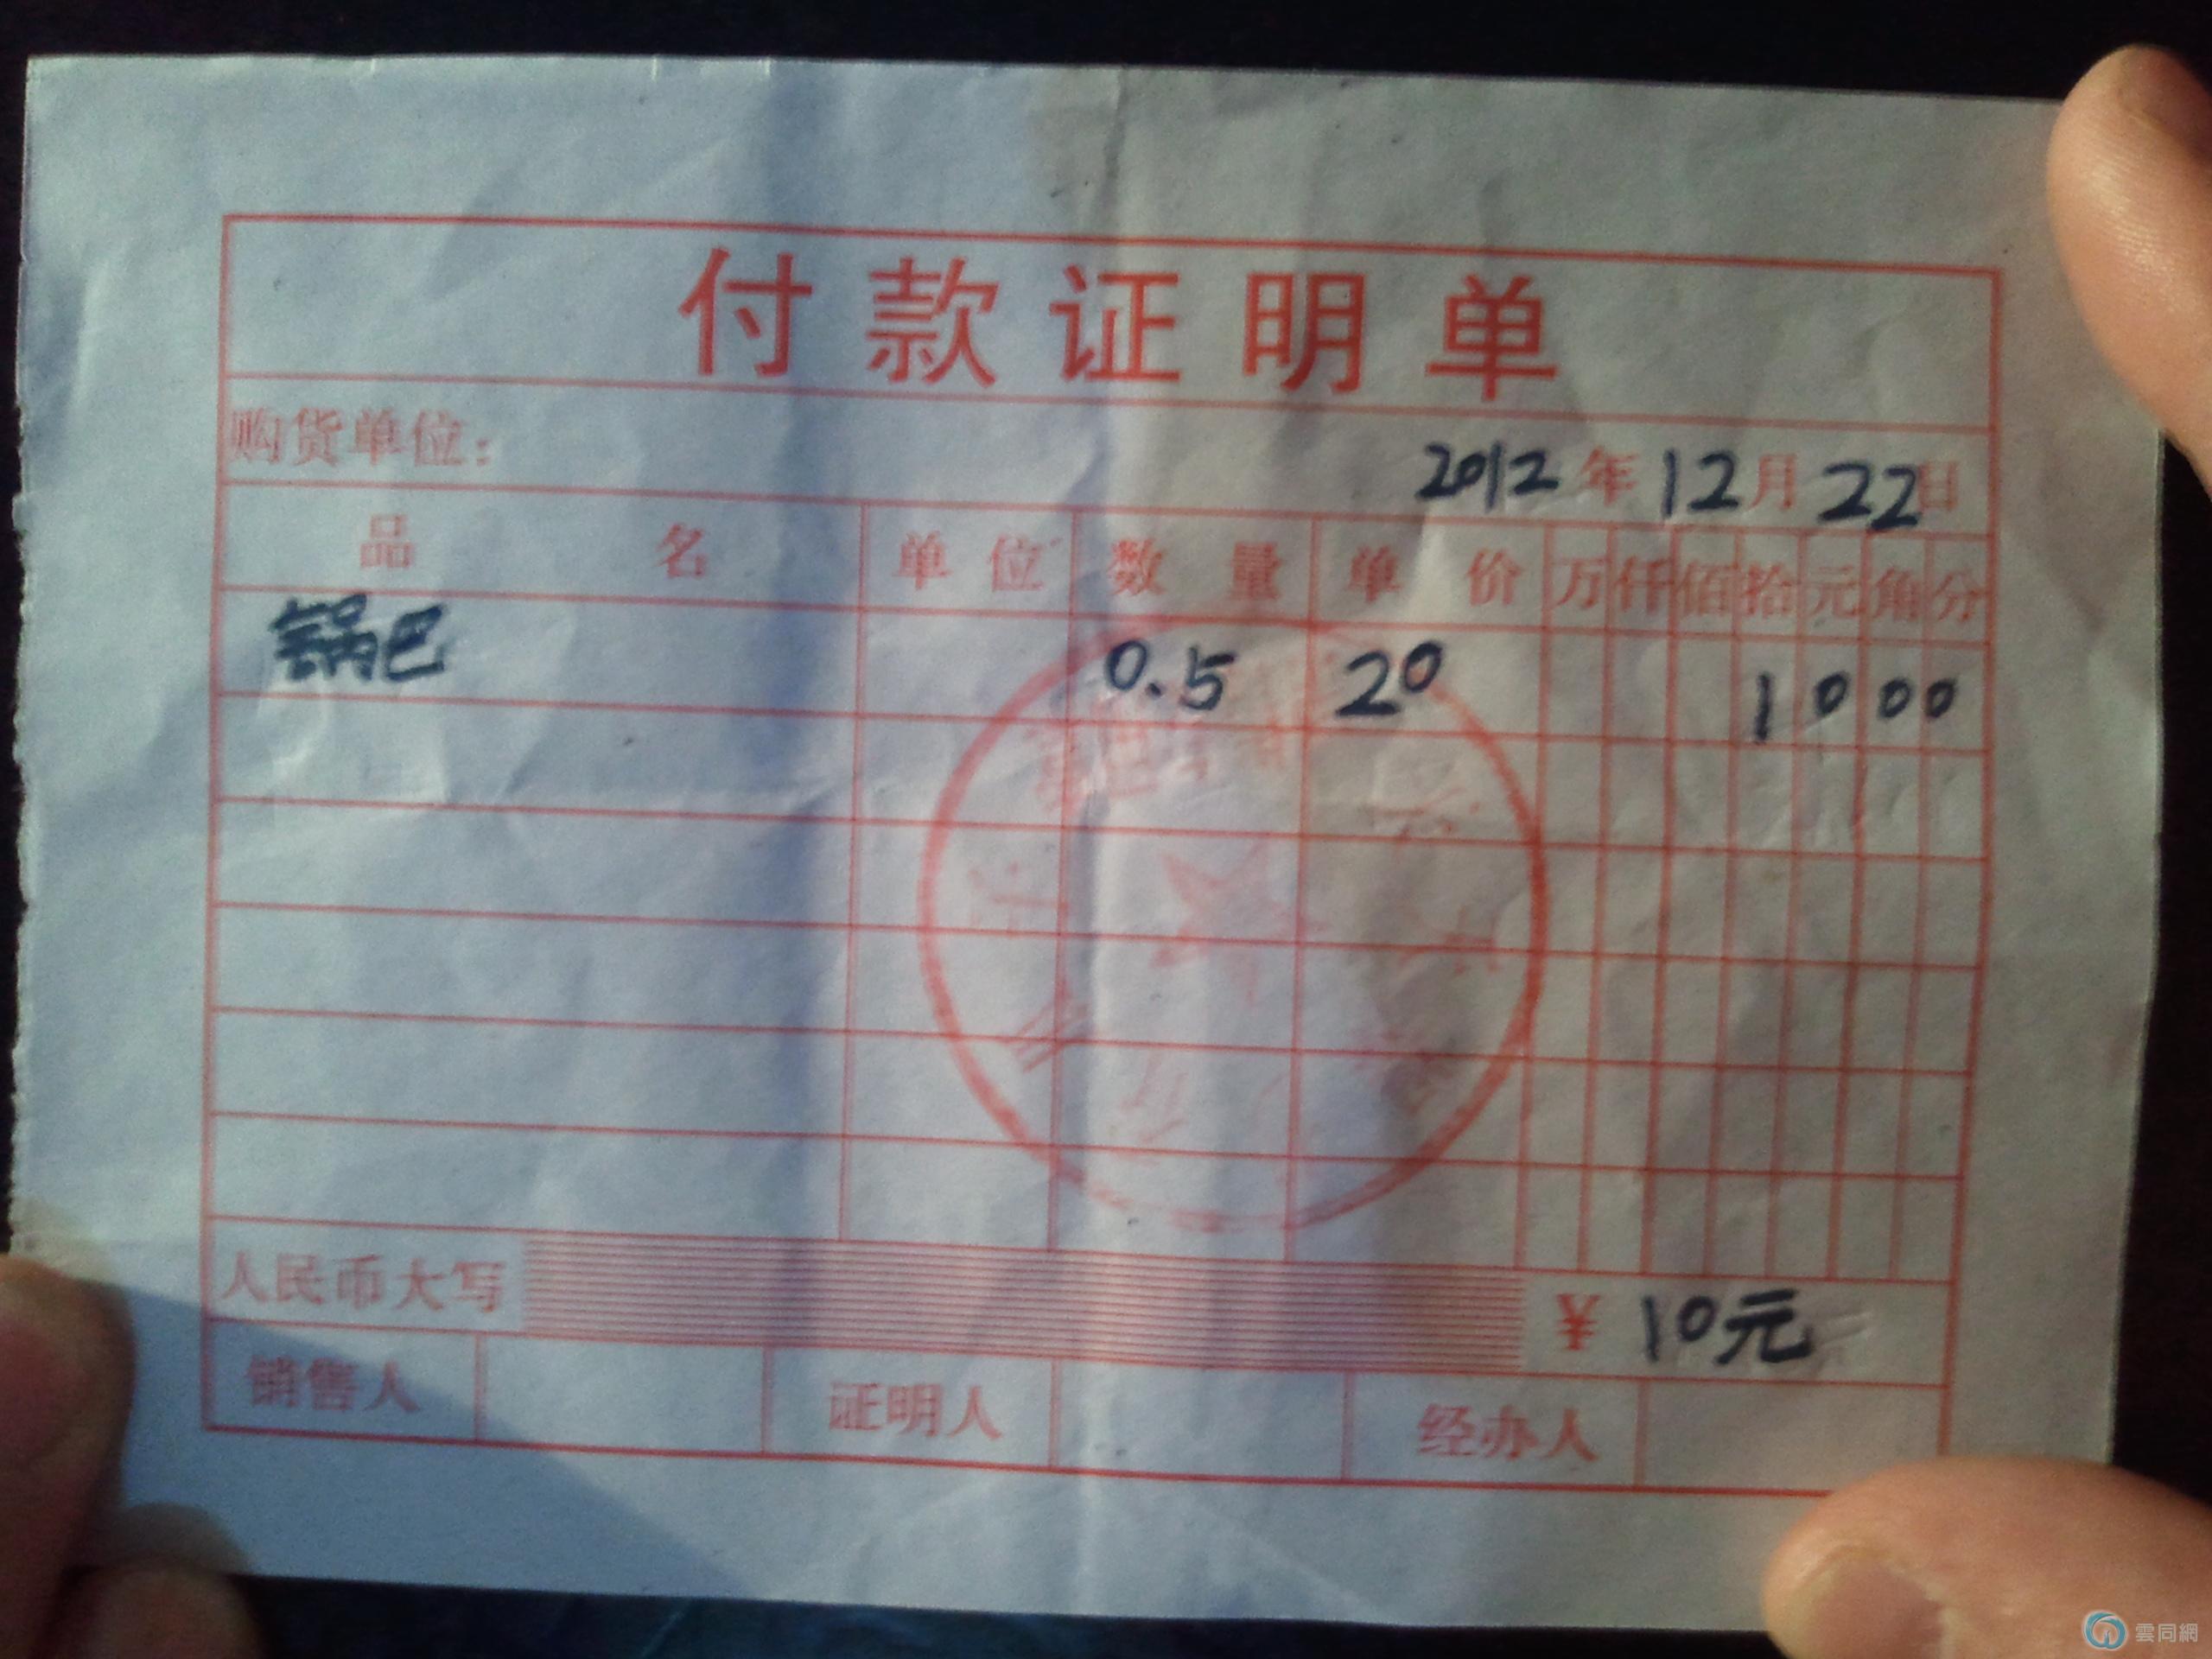 付款证明单
购货单位：
2012年12月22日
品名 单位 数量 单价 万 仟 佰 拾 元 角 分
锅巴 0.5 20 1 0 0 0
人民币大写 ¥ 10元
销售人 证明人 经办人
雲同網